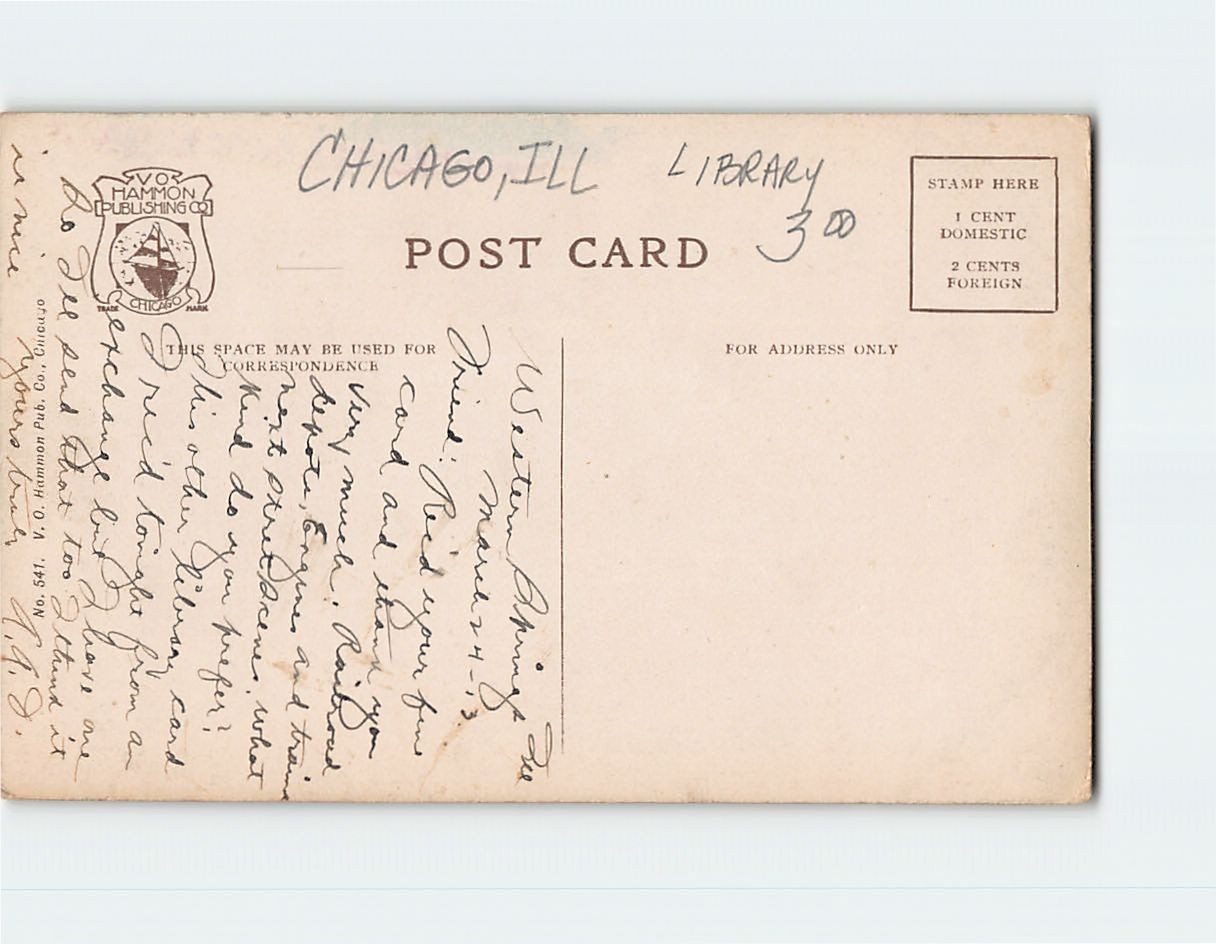 CHICAGO, ILL LIBRARY
3 00
V O
HAMMON
PUBLISHING CO
CHICAGO
TRADE MARK
POST CARD
STAMP HERE
1 CENT
DOMESTIC
2 CENTS
FOREIGN
THIS SPACE MAY BE USED FOR
CORRESPONDENCE
FOR ADDRESS ONLY
Western Springs Ill
March 24-
Friend: Rec'd your fine
card and thank you
very much. Railroad
depots, Engines and trains
next street scenes. what
kind do you prefer?
This other library card
I rec'd tonight from an
exchange but I have one
so I'll send that too. I think it
is nice yours truly
No. 541. V. O. Hammon Pub. Co., Chicago